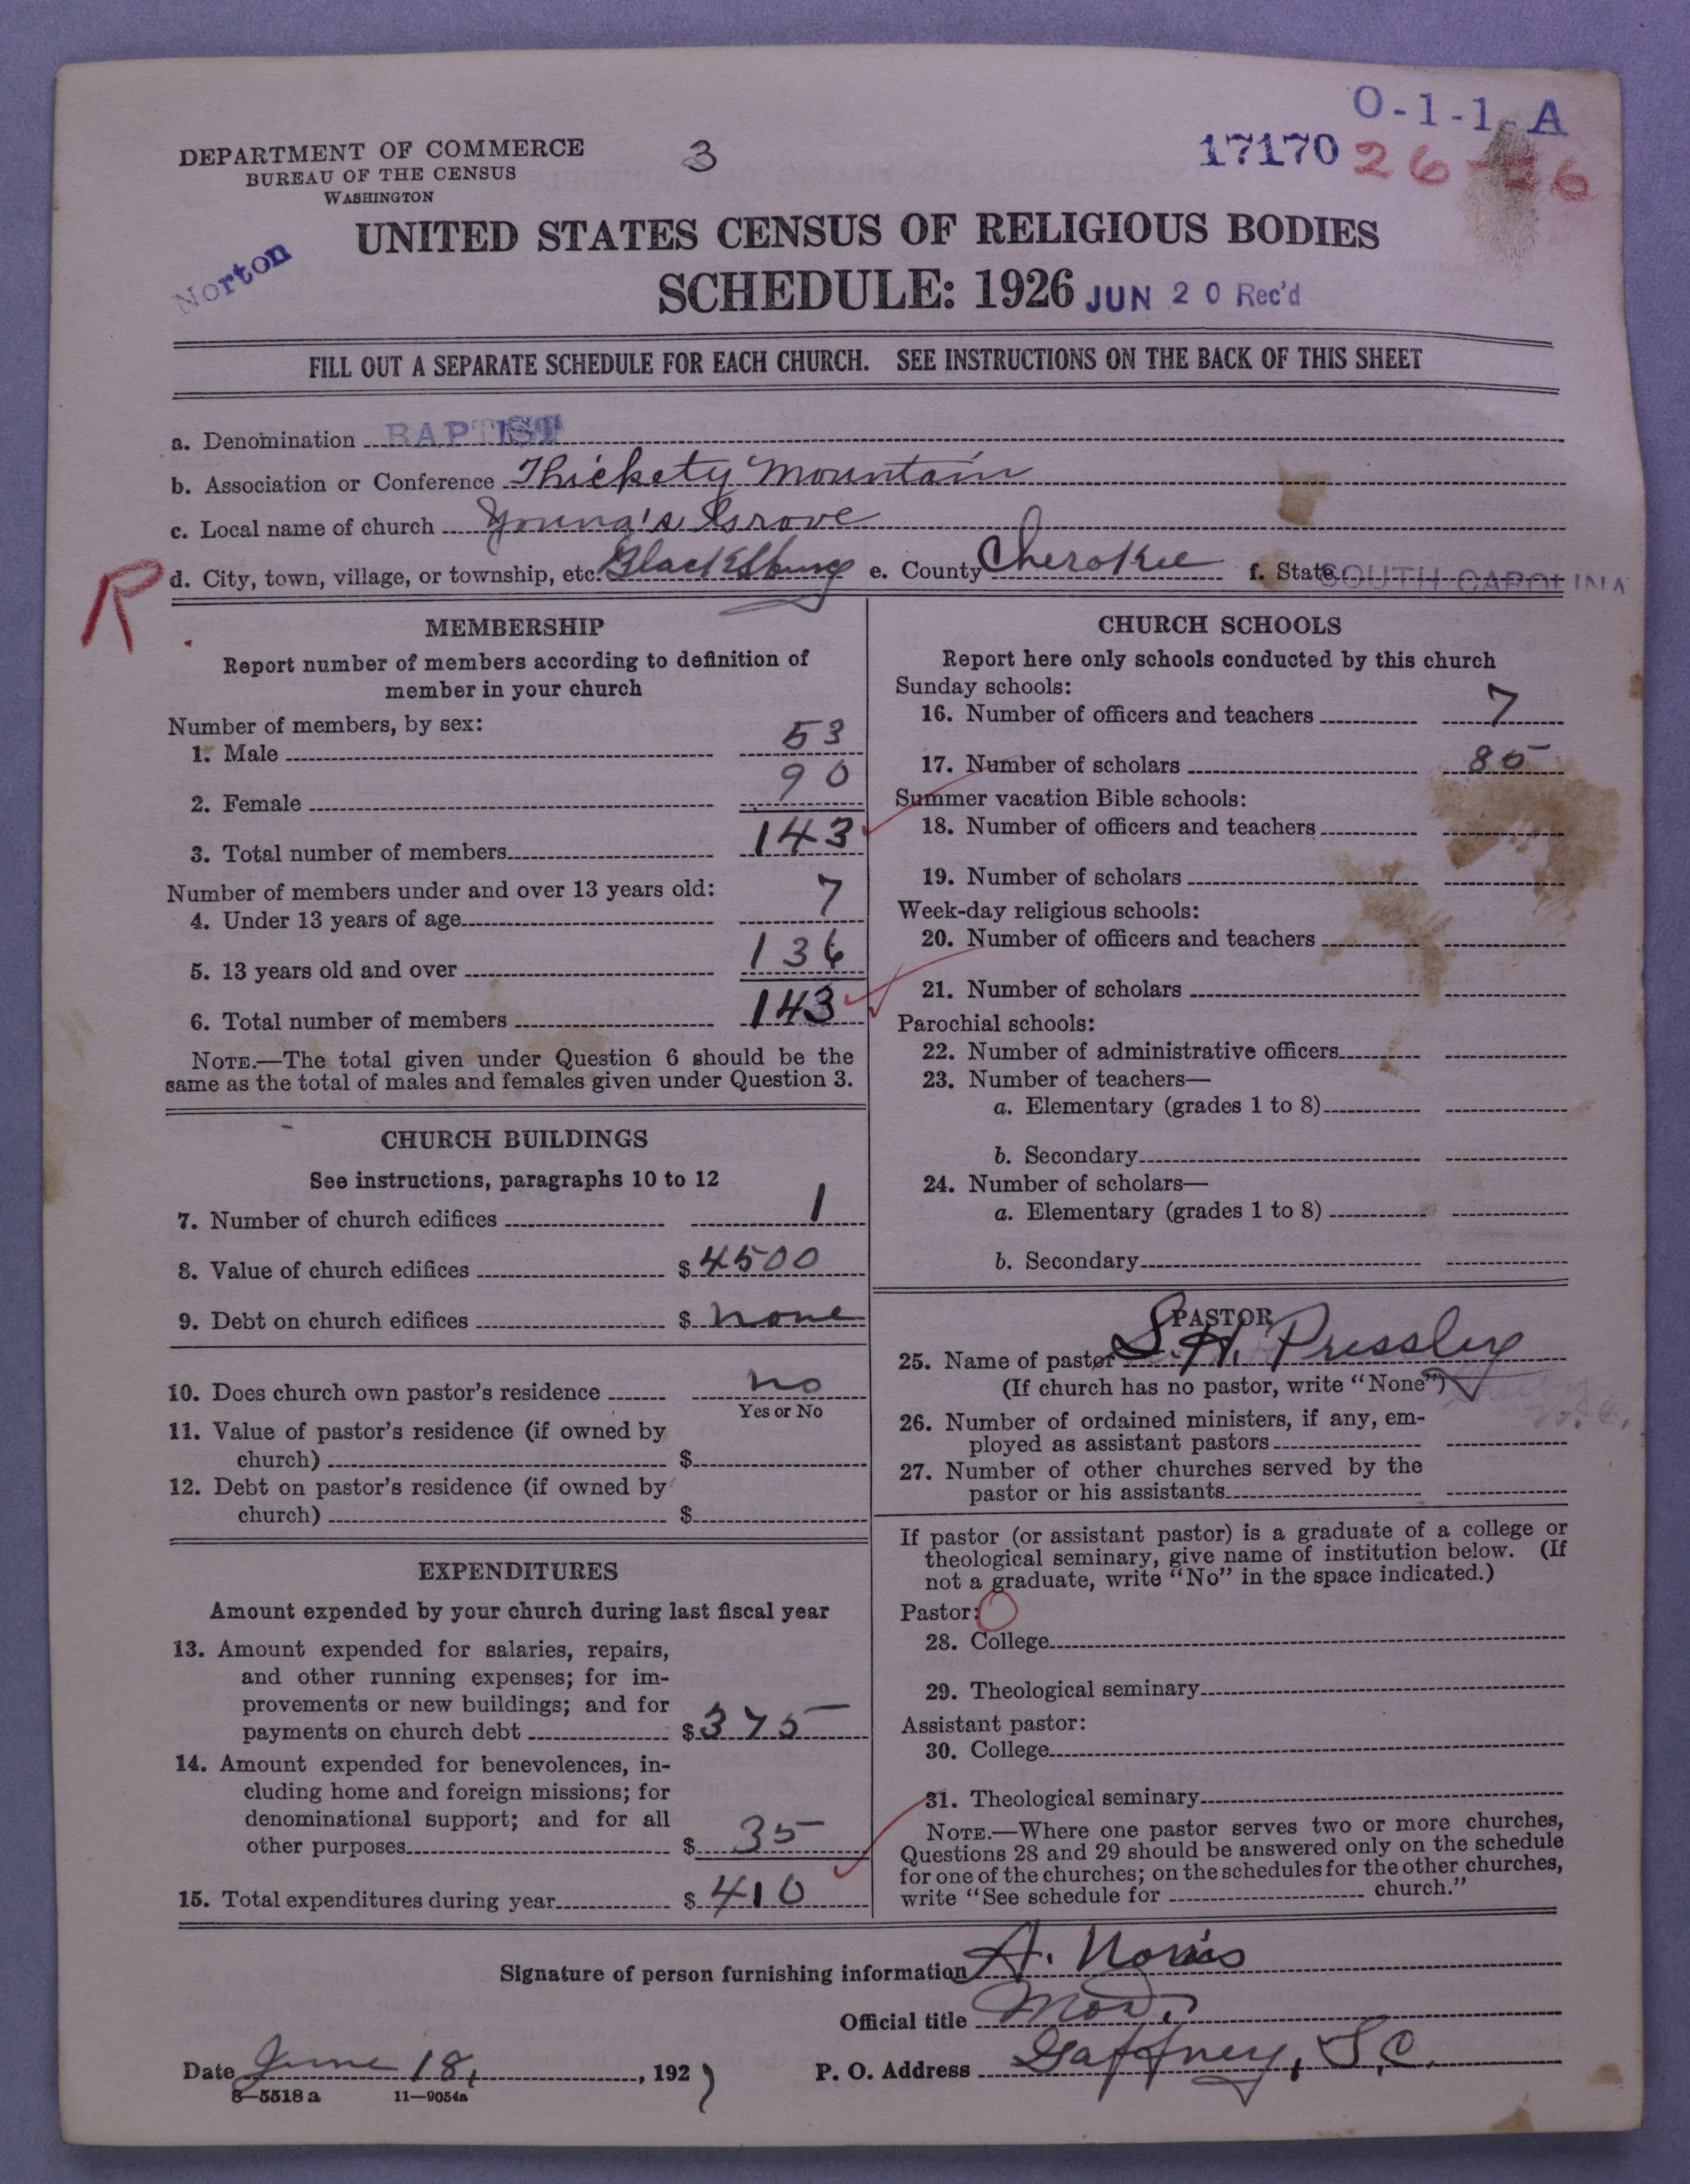 O-1-1-A
DEPARTMENT OF COMMERCE
BUREAU OF THE CENSUS
WASHINGTON
3
17170
26-
Norton
UNITED STATES CENSUS OF RELIGIOUS BODIES
SCHEDULE: 1926
JUN 20 Rec'd
FILL OUT A SEPARATE SCHEDULE FOR EACH CHURCH. SEE INSTRUCTIONS ON THE BACK OF THIS SHEET
a. Denomination BAPTIST
b. Association or Conference Thickety Mountain
c. Local name of church Young's Grove
R
d. City, town, village, or township, etc. Blacksburg e. County Cherokee f. State SOUTH CAROLINA
MEMBERSHIP
Report number of members according to definition of
member in your church
Number of members, by sex:
1. Male 53
2. Female 90
3. Total number of members 143
Number of members under and over 13 years old:
4. Under 13 years of age 7
5. 13 years old and over 136
6. Total number of members 143
NOTE.—The total given under Question 6 should be the
same as the total of males and females given under Question 3.
CHURCH BUILDINGS
See instructions, paragraphs 10 to 12
7. Number of church edifices 1
8. Value of church edifices $4500
9. Debt on church edifices $ none
10. Does church own pastor's residence no
Yes or No
11. Value of pastor's residence (if owned by
church) $
12. Debt on pastor's residence (if owned by
church) $
EXPENDITURES
Amount expended by your church during last fiscal year
13. Amount expended for salaries, repairs,
and other running expenses; for im-
provements or new buildings; and for
payments on church debt $375
14. Amount expended for benevolences, in-
cluding home and foreign missions; for
denominational support; and for all
other purposes $35
15. Total expenditures during year $410
CHURCH SCHOOLS
Report here only schools conducted by this church
Sunday schools:
16. Number of officers and teachers 7
17. Number of scholars 85
Summer vacation Bible schools:
18. Number of officers and teachers
19. Number of scholars
Week-day religious schools:
20. Number of officers and teachers
21. Number of scholars
Parochial schools:
22. Number of administrative officers
23. Number of teachers—
a. Elementary (grades 1 to 8)
b. Secondary
24. Number of scholars—
a. Elementary (grades 1 to 8)
b. Secondary
PASTOR
25. Name of pastor S. H. Pressley
(If church has no pastor, write "None")
26. Number of ordained ministers, if any, em-
ployed as assistant pastors
27. Number of other churches served by the
pastor or his assistants
If pastor (or assistant pastor) is a graduate of a college or
theological seminary, give name of institution below. (If
not a graduate, write "No" in the space indicated.)
Pastor: O
28. College
29. Theological seminary
Assistant pastor:
30. College
31. Theological seminary
NOTE.—Where one pastor serves two or more churches,
Questions 28 and 29 should be answered only on the schedule
for one of the churches; on the schedules for the other churches,
write "See schedule for church."
Signature of person furnishing information A. Norris
Official title Mod.
Date June 18, , 1927
P. O. Address Gaffney, S.C.
8—5518 a 11—9054a